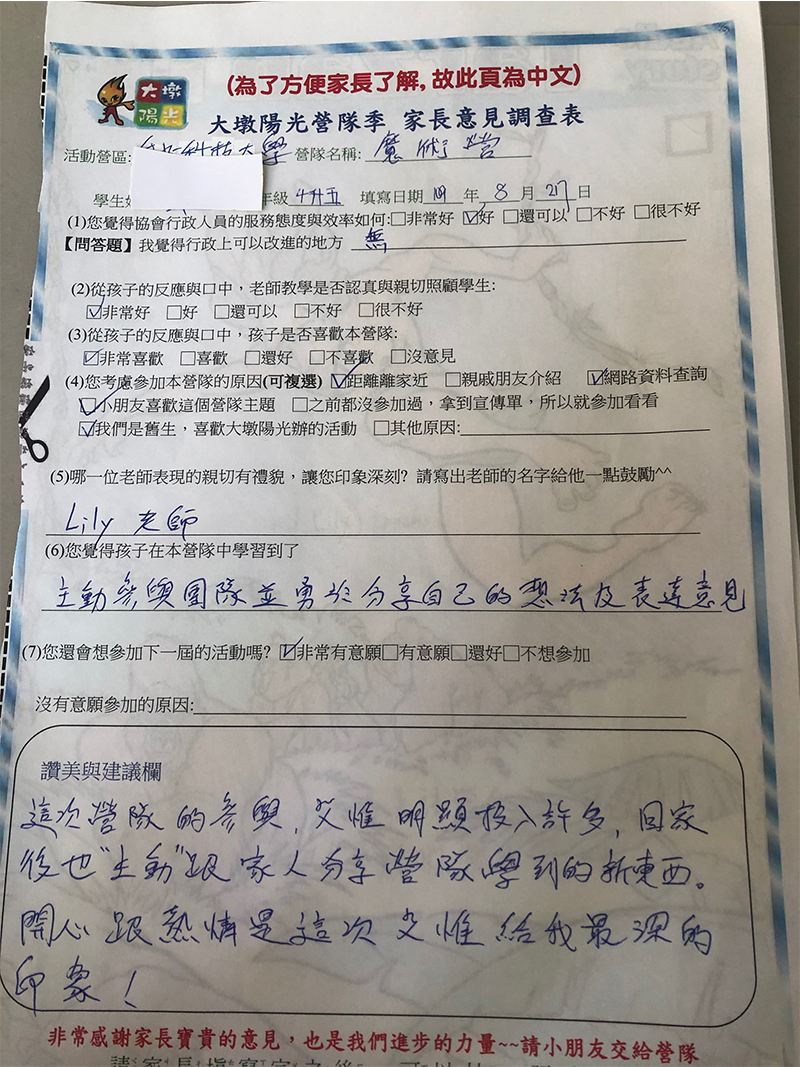 (為了方便家長了解, 故此頁為中文)
大墩
陽光
大墩陽光營隊季 家長意見調查表
活動營區: 科技大學 營隊名稱: 魔術營
學生 年級 4升五 填寫日期 年 8 月 27 日
(1)您覺得協會行政人員的服務態度與效率如何:□非常好 ☑好 □還可以 □不好 □很不好
【問答題】我覺得行政上可以改進的地方 無
(2)從孩子的反應與口中，老師教學是否認真與親切照顧學生:
☑非常好 □好 □還可以 □不好 □很不好
(3)從孩子的反應與口中，孩子是否喜歡本營隊:
☑非常喜歡 □喜歡 □還好 □不喜歡 □沒意見
(4)您考慮參加本營隊的原因(可複選) ☑距離離家近 □親戚朋友介紹 ☑網路資料查詢
☑小朋友喜歡這個營隊主題 □之前都沒參加過，拿到宣傳單，所以就參加看看
☑我們是舊生，喜歡大墩陽光辦的活動 □其他原因:
(5)哪一位老師表現的親切有禮貌，讓您印象深刻? 請寫出老師的名字給他一點鼓勵^^
Lily 老師
(6)您覺得孩子在本營隊中學習到了
主動參與團隊並勇於分享自己的想法及表達意見
(7)您還會想參加下一屆的活動嗎? ☑非常有意願□有意願□還好□不想參加
沒有意願參加的原因:
讚美與建議欄
這次營隊的參與, 艾惟明顯投入許多, 回家
後也"主動"跟家人分享營隊學到的新東西。
開心跟熱情是這次艾惟給我最深的
印象!
非常感謝家長寶貴的意見，也是我們進步的力量~~請小朋友交給營隊